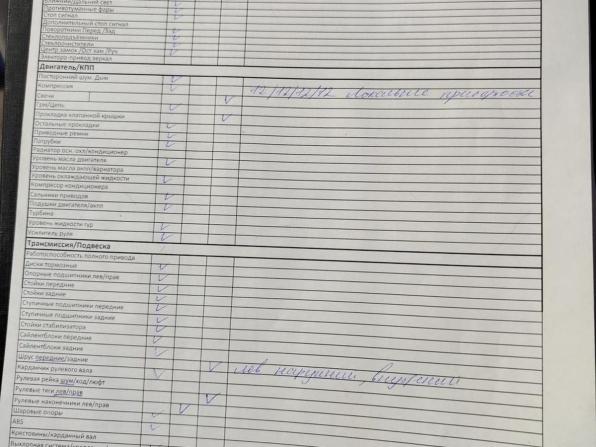 Ближний/дальний свет
Противотуманные фары
Стоп сигнал
Дополнительный стоп сигнал
Поворотники Перед /Зад
Стеклоподъёмники
Стеклоочистители
Центр замок /Ост хам /Руч
Электро привод зеркал
Двигатель/КПП
Посторонний шум. Дым
Компрессия 12/12/12/12
Свечи
Грм/Цепь
Прокладка клапанной крышки
Остальные прокладки
Приводные ремни
Патрубки
Радиатор осн. охл/кондиционер
Уровень масла двигателя
Уровень масла акпп/вариатора
Уровень охлаждающей жидкости
Компресор кондиционера
Сальники приводов
Подушки двигателя/акпп
Турбина
Уровень жидкости гур
Усилитель руля
Трансмиссия/Подвеска
Работоспособность полного привода
Диски тормозные
Опорные подшипники лев/прав
Стойки передние
Стойки задние
Ступичные подшипники передние
Ступичные подшипники задние
Стойки стабилизатора
Сайлентблоки передние
Сайлентблоки задние
Шрус передние/задние лев наружний, внутренний
Карданчик рулевого вала
Рулевая рейка шум/ход/люфт
Рулевые тяги лев/прав
Рулевые наконечники лев/прав
Шаровые опоры
ABS
Крестовины/карданный вал